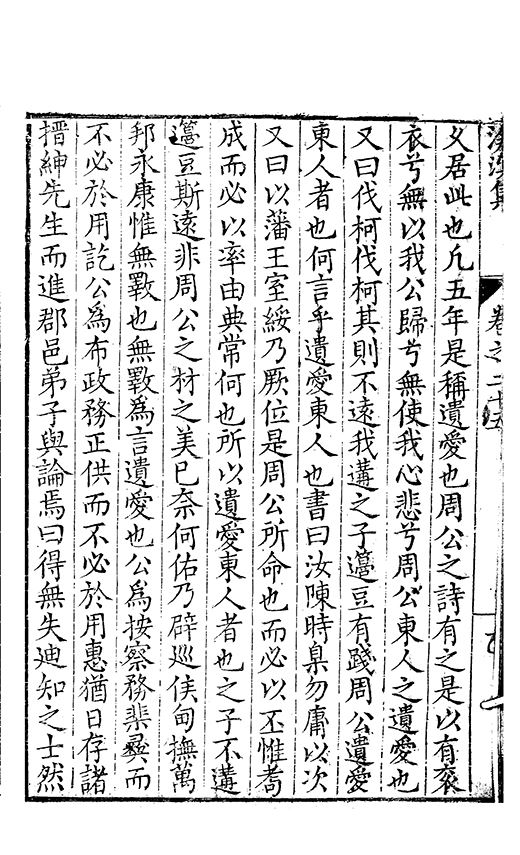 父居此也凡五年是稱遺愛也周公之詩有之是以有袞
衣兮無以我公歸兮無使我心悲兮周公東人之遺愛也
又曰伐柯伐柯其則不遠我遘之子籩豆有踐周公遺愛
東人者也何言乎遺愛東人也書曰汝陳時臬勿庸以次
又曰以藩王室綏乃厥位是周公所命也而必以丕惟耇
成而必以率由典常何也所以遺愛東人者也之子不遘
籩豆斯遠非周公之材之美已奈何佑乃辟巡侯甸撫萬
邦永康惟無斁也無斁爲言遺愛也公爲按察務棐彝而
不必於用訖公爲布政務正供而不必於用惠猶日存諸
搢紳先生而進郡邑弟子與論焉曰得無失迪知之士然
集
卷之二十五